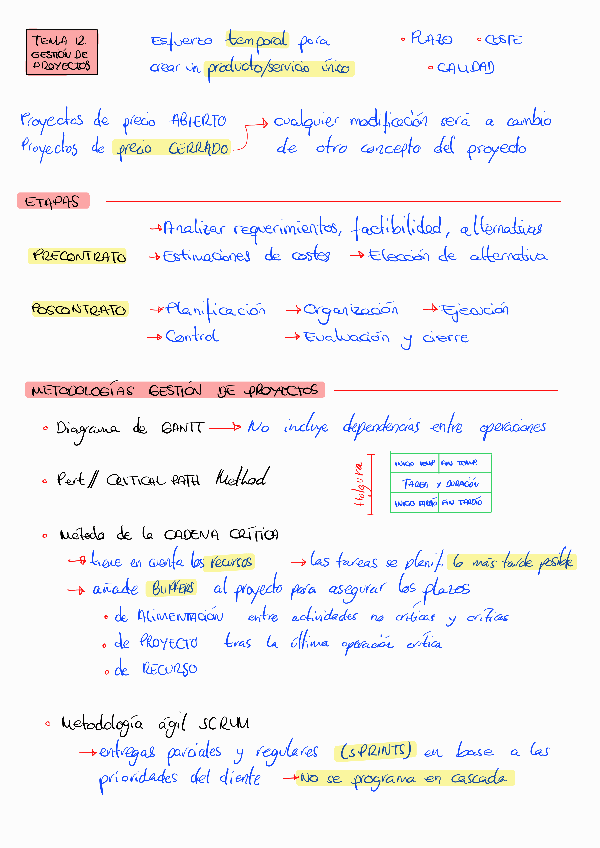 TEMA 12. GESTIÓN DE PROYECTOS
Esfuerzo temporal para
crear un producto/servicio único
• PLAZO • COSTE
• CALIDAD
Proyectos de precio ABIERTO
Proyectos de precio CERRADO → cualquier modificación será a cambio
de otro concepto del proyecto
ETAPAS
PRECONTRATO
→ Analizar requerimientos, factibilidad, alternativas
→ Estimaciones de costes → Elección de alternativa
POSCONTRATO
→ Planificación → Organización → Ejecución
→ Control → Evaluación y cierre
METODOLOGÍAS GESTIÓN DE PROYECTOS
• Diagrama de GANTT → No incluye dependencias entre operaciones
• Pert // CRITICAL PATH Method
Holgura
INICIO TEMP FIN TEMP.
TAREA Y DURACIÓN
INICIO TARDÍO FIN TARDÍO
• Método de la CADENA CRÍTICA
→ tiene en cuenta los recursos → las tareas se planif. lo más tarde posible
→ añade BUFFERS al proyecto para asegurar los plazos
• de ALIMENTACIÓN entre actividades no críticas y críticas
• de PROYECTO tras la última operación crítica
• de RECURSO
• Metodología ágil SCRUM
→ entregas parciales y regulares (SPRINTS) en base a las
prioridades del cliente → No se programa en cascada